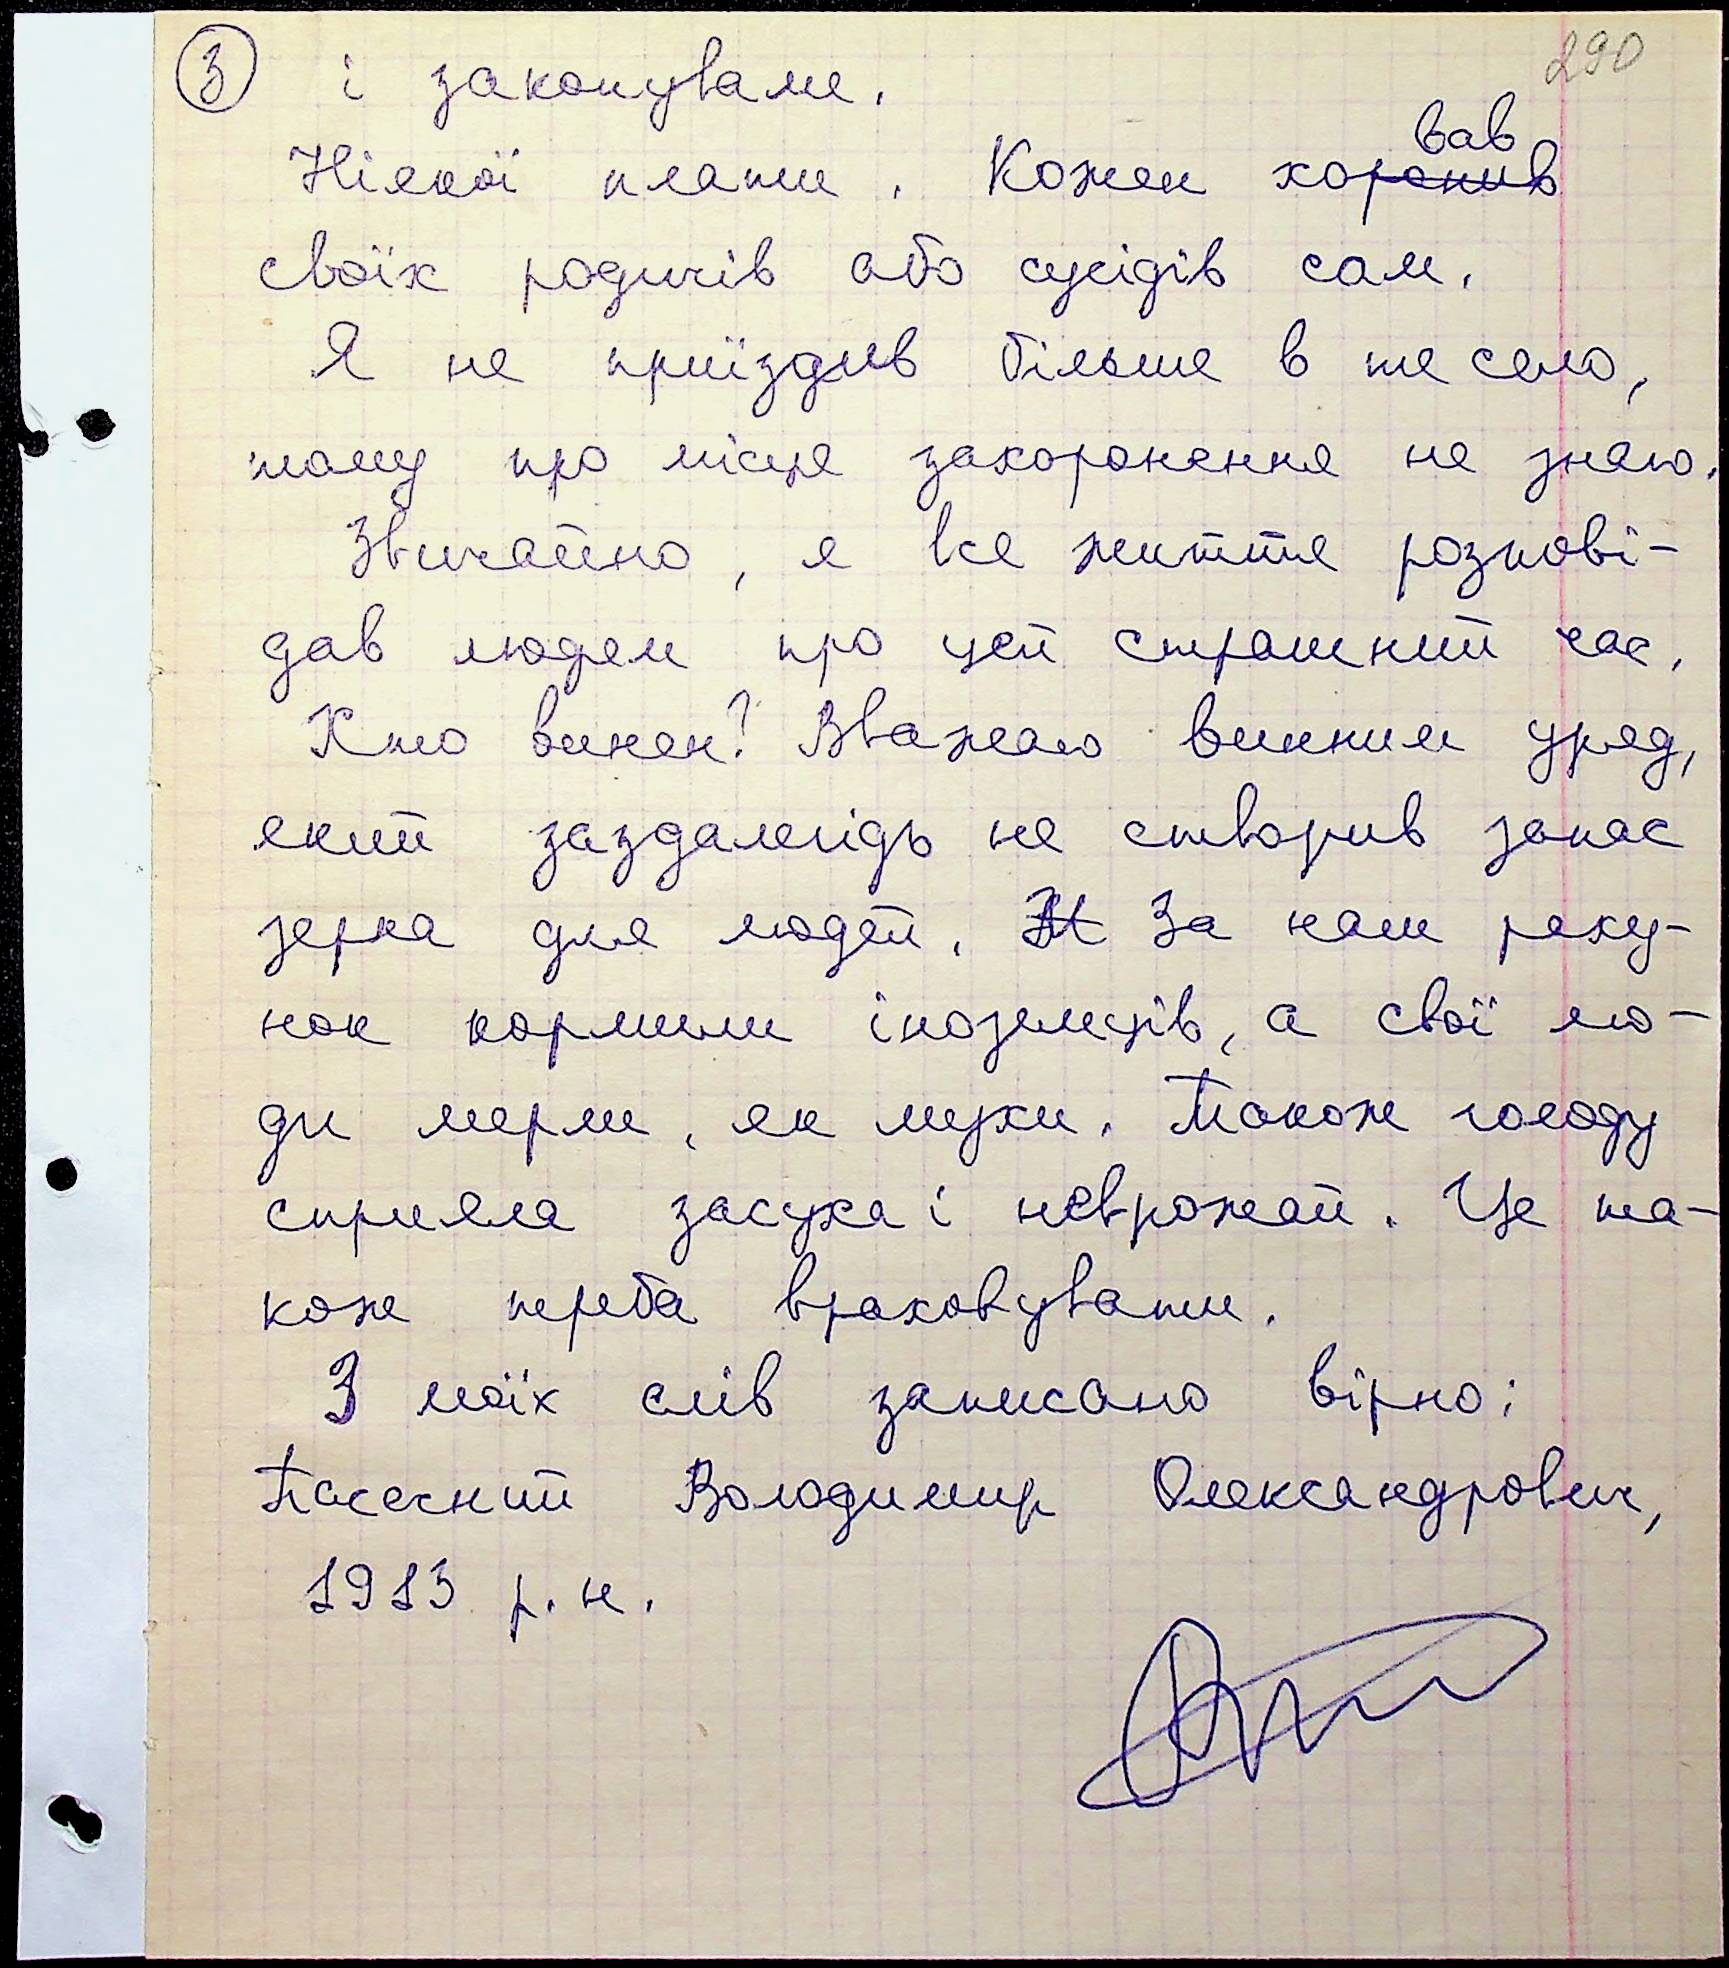 3 і закопували. 290
Ніякої плати. Кожен хоронив вав
своїх родичів або сусідів сам.
Я не приїздив більше в те село,
тому про місце захоронення не знаю.
Звичайно, я все життя розпові-
дав людям про цей страшний час.
Хто винен? Вважаю винним уряд,
який заздалегідь не створив запас
зерна для людей. За наш раху-
нок кормили іноземців, а свої лю-
ди мерли, як мухи. Також голоду
сприяла засуха і неврожай. Це та-
кож треба враховувати.
З моїх слів записано вірно:
Пасечний Володимир Олександрович,
1913 р.н.